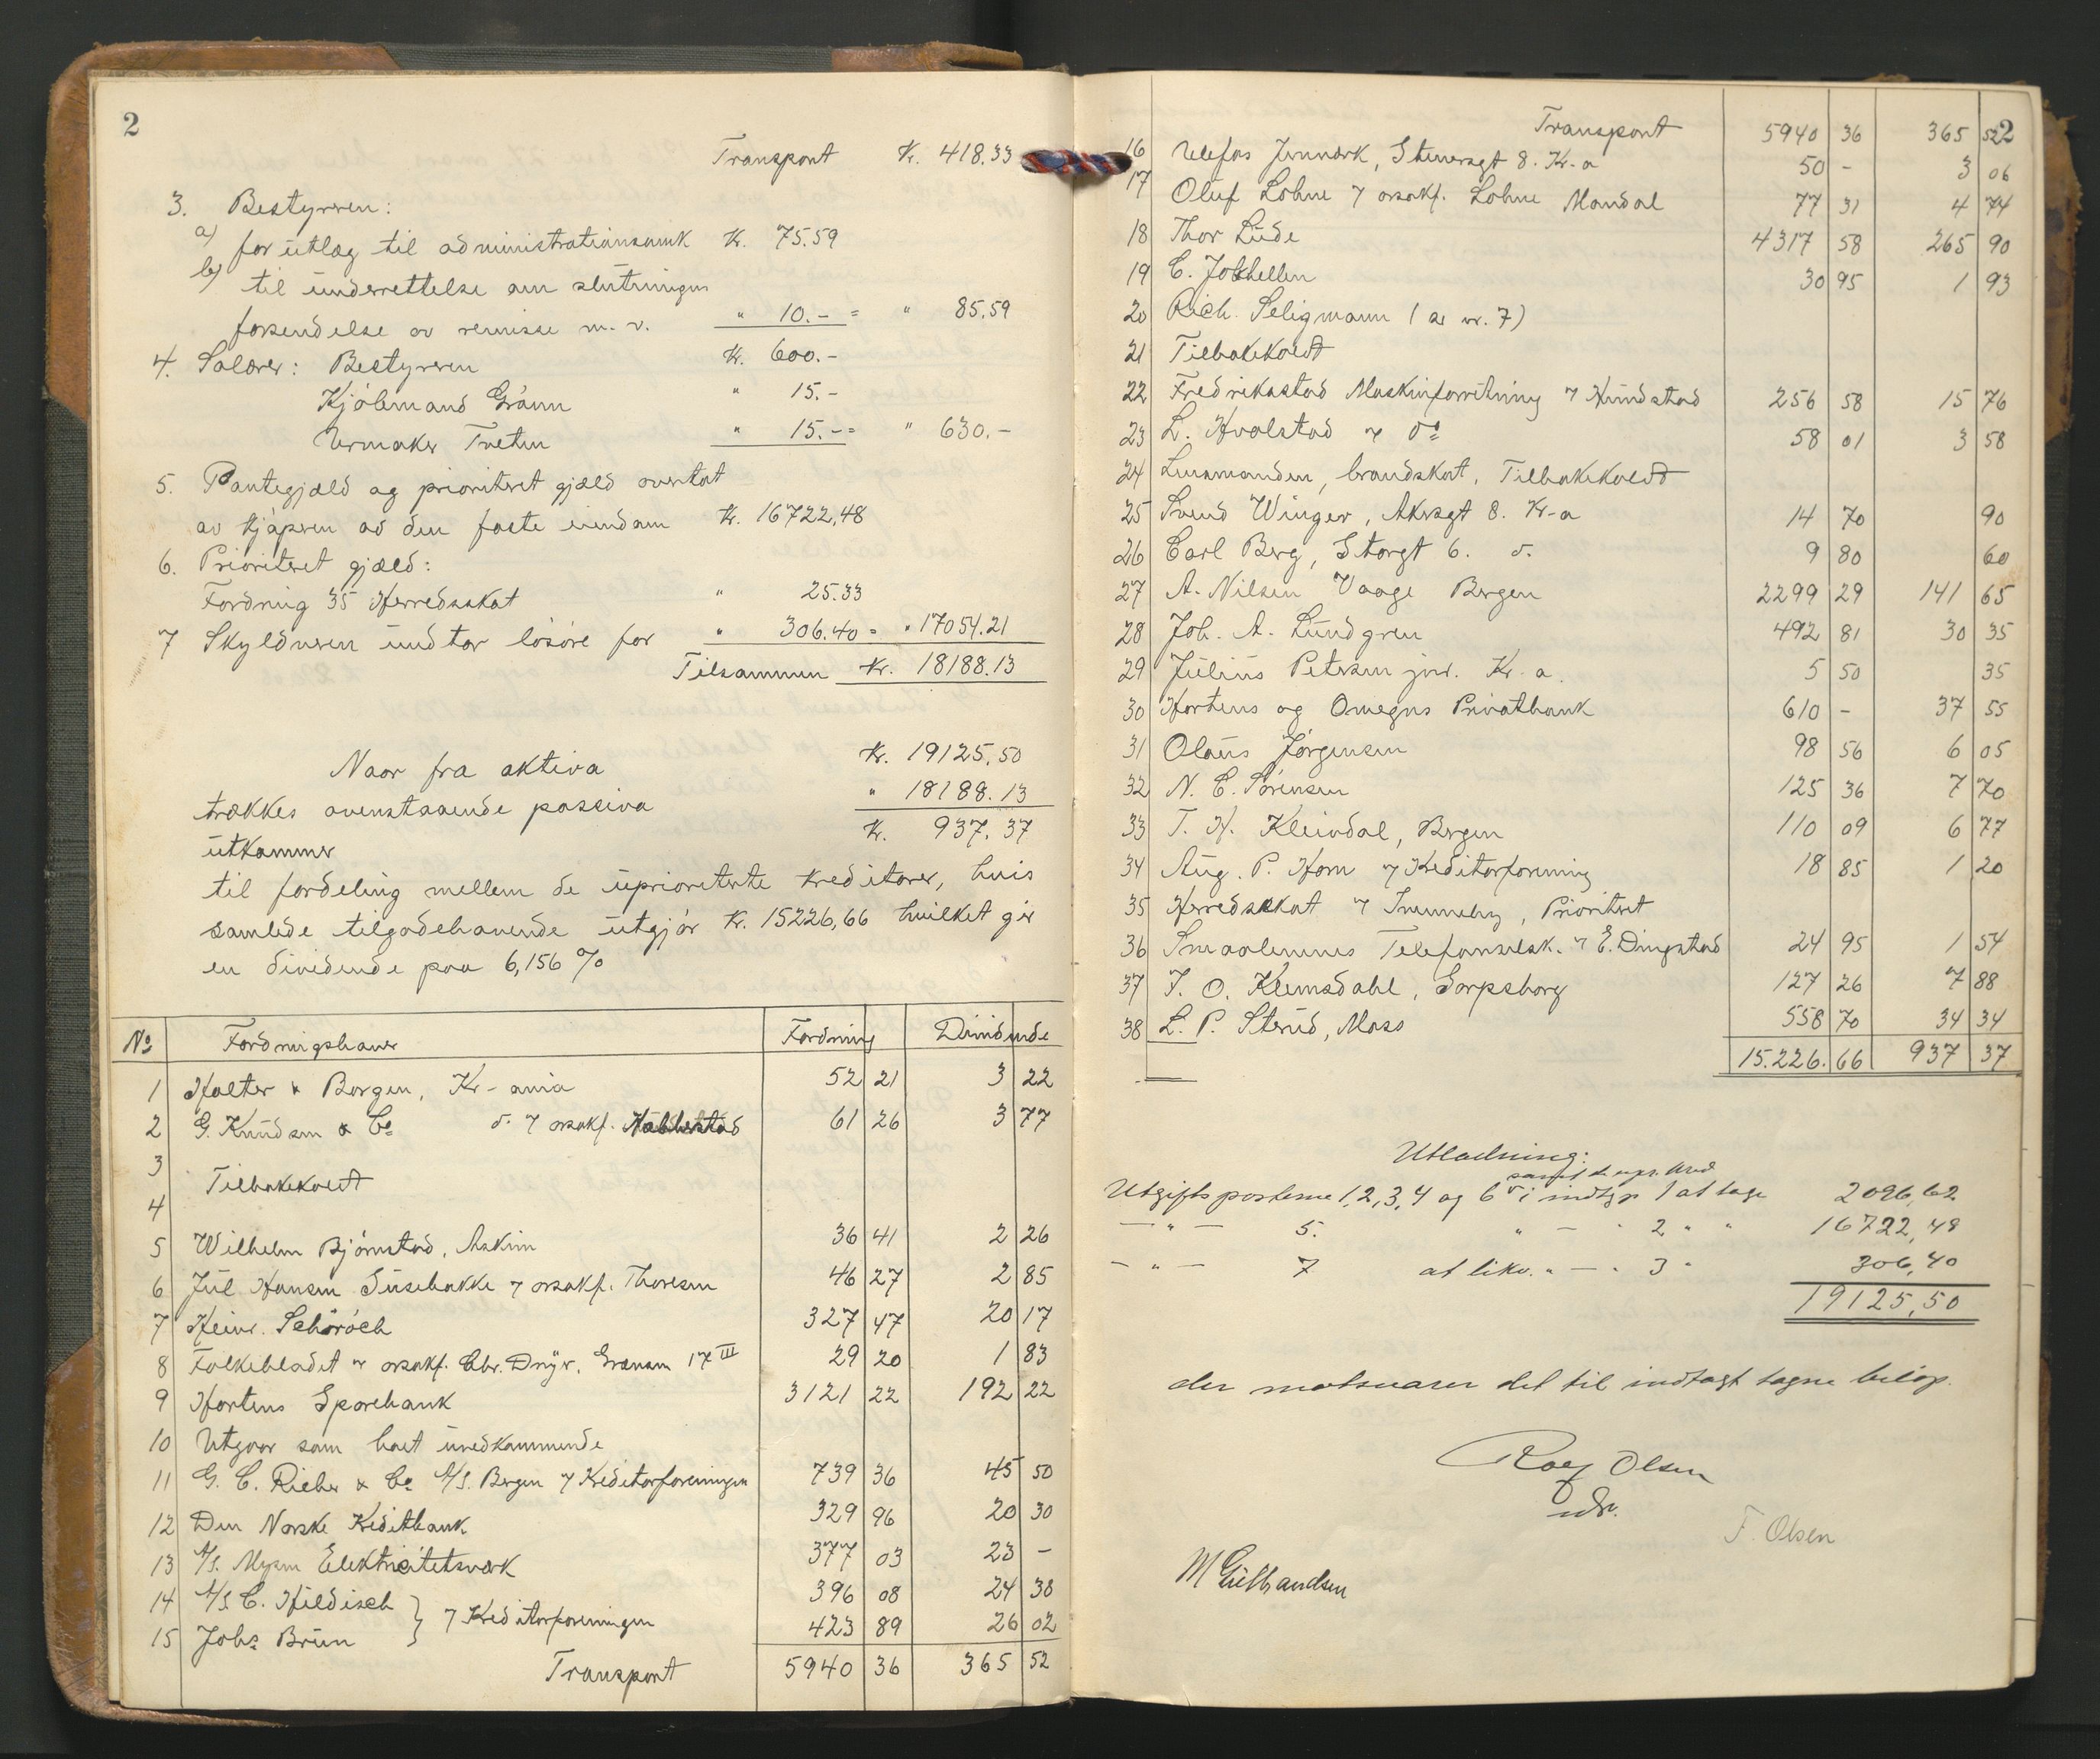 2
Transport Kr. 418.33
3. Bestyreren:
a) for utlæg til administrationsomk Kr. 75.59
b) til underrettelse om slutningen
forsendelse av remisse m. v. " 10.- = " 85.59
4. Salærer: Bestyreren Kr. 600.-
Kjöbmand Grönn " 15.-
Urmaker Tveten " 15.-= " 630.-
5. Pantegjæld og prioritert gjæld overtat
av kjøperen av den faste eiendom Kr. 16722,48
6. Prioritert gjæld:
Fordring 35 Herredsskat " 25.33
7 Skyldneren undtar lösöre for " 306.40 = " 17054.21
Tilsammen Kr. 18188.13
Naar fra aktiva Kr. 19125.50
trækkes ovenstaaende passiva " 18188.13
utkommer Kr. 937.37
til fordeling mellem de uprioriterte kreditorer, hvis
samlede tilgodehavende utgjör Kr. 15226,66 hvilket gir
en dividende paa 6,156 %
No Fordringshaver Fordring Dividende
1 Holter & Borgen, Kr-ania 52 21 3 22
2 G. Knudsen & Co d. v orsakf. Hobberstad 61 26 3 77
3
Tilbakekaldt
4
5 Wilhelm Björnstad, Askim 36 41 2 26
6 Jul Hansen Susebakke v orsakf. Thoresen 46 27 2 85
7 Heinr. Schöröch 327 47 20 17
8 Folkebladet v orsakf. Chr. Dryer, Grænsen 17 III 29 20 1 83
9 Hortens Sparebank 3121 22 192 22
10 Utgaar som boet uvedkommende
11 G. C. Rieber & Co A/S. Bergen v Kreditorforeningen 739 36 45 50
12 Den Norske Kreditbank 329 96 20 30
13 A/S. Mysen Elektricitetsverk 377 03 23 -
14 A/S C. Hildisch } v Kreditorforeningen 396 08 24 38
15 Johs Brun 423 89 26 02
Transport 5940 36 365 52
2
Transport 5940 36 365 52
16 Elefos Jernverk, Stenersgt 8. Kr-a 50 - 3 06
17 Oluf Lohne v orsakf. Lohne Mandal 77 31 4 74
18 Thor Lude 4317 58 265 90
19 C. Jokhellen 30 95 1 93
20 Rich. Seligmann (se nr. 7)
21 Tilbakekaldt
22 Fredrikstad Maskinforretning v Hundstad 256 58 15 76
23 L. Hvalstad v do 58 01 3 58
24 Lensmanden, brandskat, Tilbakekaldt
25 Svend Winger, Akersgt 8. Kr-a 14 70 90
26 Carl Berg, Storgt 6. d. 9 80 60
27 A. Nilsen Vaage Bergen 2299 29 141 65
28 Joh. A. Lundgren 492 81 30 35
29 Julius Petersen jnr. Kr-a. 5 50 35
30 Hortens og Omegns Privatbank 610 - 37 55
31 Olaus Jörgensen 98 56 6 05
32 N. C. Sörensen 125 36 7 70
33 T. H. Kleivdal, Bergen 110 09 6 77
34 Aug. P. Horn v Kreditorforening 18 85 1 20
35 Herredsskat v Svenneby, Prioritert
36 Smaalenenes Telefonselsk. v E. Dingstad 24 95 1 54
37 J. O. Klemsdahl, Sarpsborg 127 26 7 88
38 L. P. Sterud, Moss 558 70 34 34
15.226.66 937 37
Utlodning:
samt de upr. kred
Utgiftsposterne 1,2,3,4 og 6 i indtgp 1 at tage 2096,62
— " — 5. " — " 2 " " 16722,48
— " — 7 at likv. " — " 3 " 306,40
19125,50
der motsvarer det til indtægt tagne belöp.
Rolf Olsen
F. Olsen
M Gulbrandsen